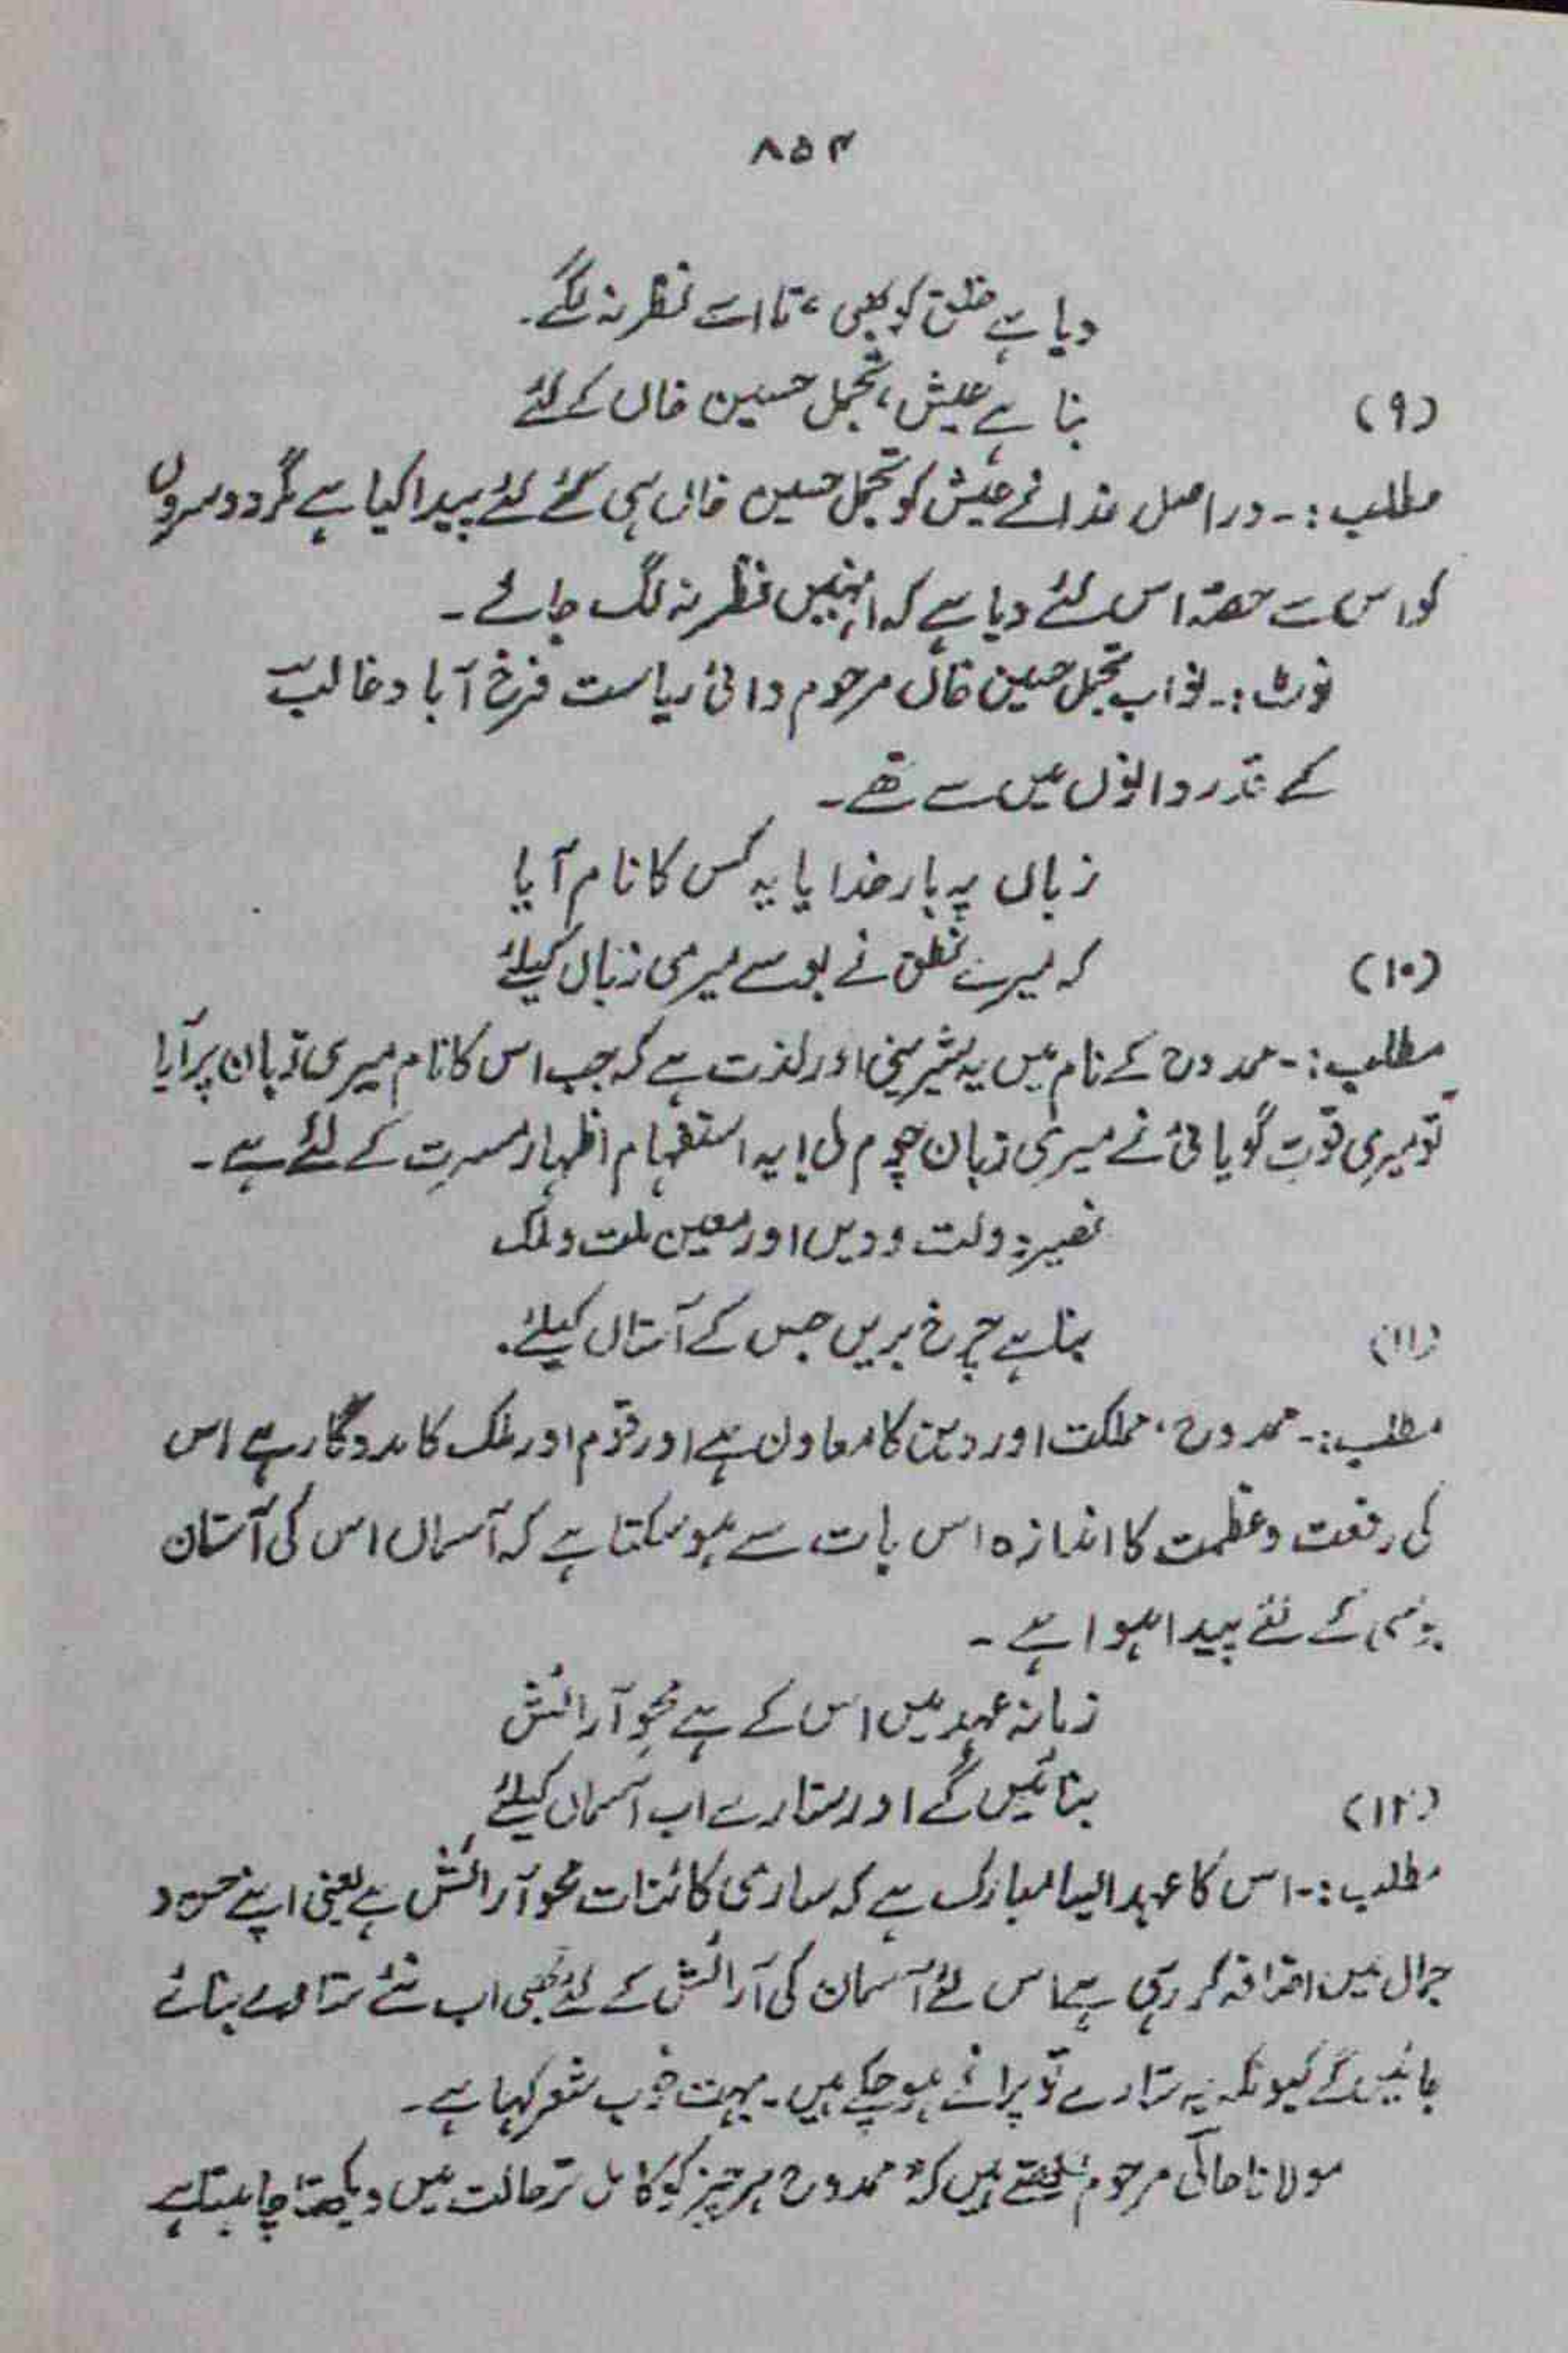 ۸۵۴
دیا ہے خلق کو بھی، تا اسے نظر نہ لگے۔
(۹) بنا ہے عیش، تجمل حسین خاں کے لئے
مطلب :۔ دراصل خدا نے عیش کو تجمل حسین خاں ہی کے لئے پیدا کیا ہے مگر دوسروں
کو اس سے حصّہ اس لئے دیا ہے کہ انہیں نظر نہ لگ جائے ۔
نوٹ :۔ نواب تجمل حسین خاں مرحوم والیٔ ریاست فرخ آباد غالبؔ
کے قدر دانوں میں سے تھے ۔
زباں پہ بار خدایا یہ کس کا نام آیا
(۱۰) کہ میرے نطق نے بوسے میری زباں کیلئے
مطلب :۔ ممدوح کے نام میں یہ شیرینی اور لذت ہے کہ جب اس کا نام میری زبان پر آیا
تو میری قوتِ گویائی نے میری زبان چوم لی! یہ استفہام اظہار مسرت کے لئے ہے ۔
نصیر دولت و دیں اور معین ملت و ملک
(۱۱) بنا ہے چرخ بریں جس کے آستاں کیلئے۔
مطلب :۔ ممدوح، مملکت اور دین کا معاون ہے اور قوم اور ملک کا مددگار ہے اس
کی رفعت و عظمت کا اندازہ اس بات سے ہو سکتا ہے کہ آسماں اس کی آستان
بوسی کے لئے پیدا ہوا ہے ۔
زمانہ عہد میں اس کے ہے محوِ آرائش
(۱۲) بنائیں گے اور ستارے اب آسماں کیلئے
مطلب :۔ اس کا عہد ایسا مبارک ہے کہ ساری کائنات محو آرائش ہے یعنی اپنے حسن و
جمال میں اضافہ کر رہی ہے اس لئے آسمان کی آرائش کے لئے بھی اب نئے ستارے بنائے
جائیں گے کیونکہ یہ ستارے تو پرانے ہو چکے ہیں ۔ بہت خوب شعر کہا ہے ۔
مولانا حالیؔ مرحوم لکھتے ہیں کہ "ممدوح ہر چیز کو کامل تر حالت میں دیکھنا چاہتا ہے